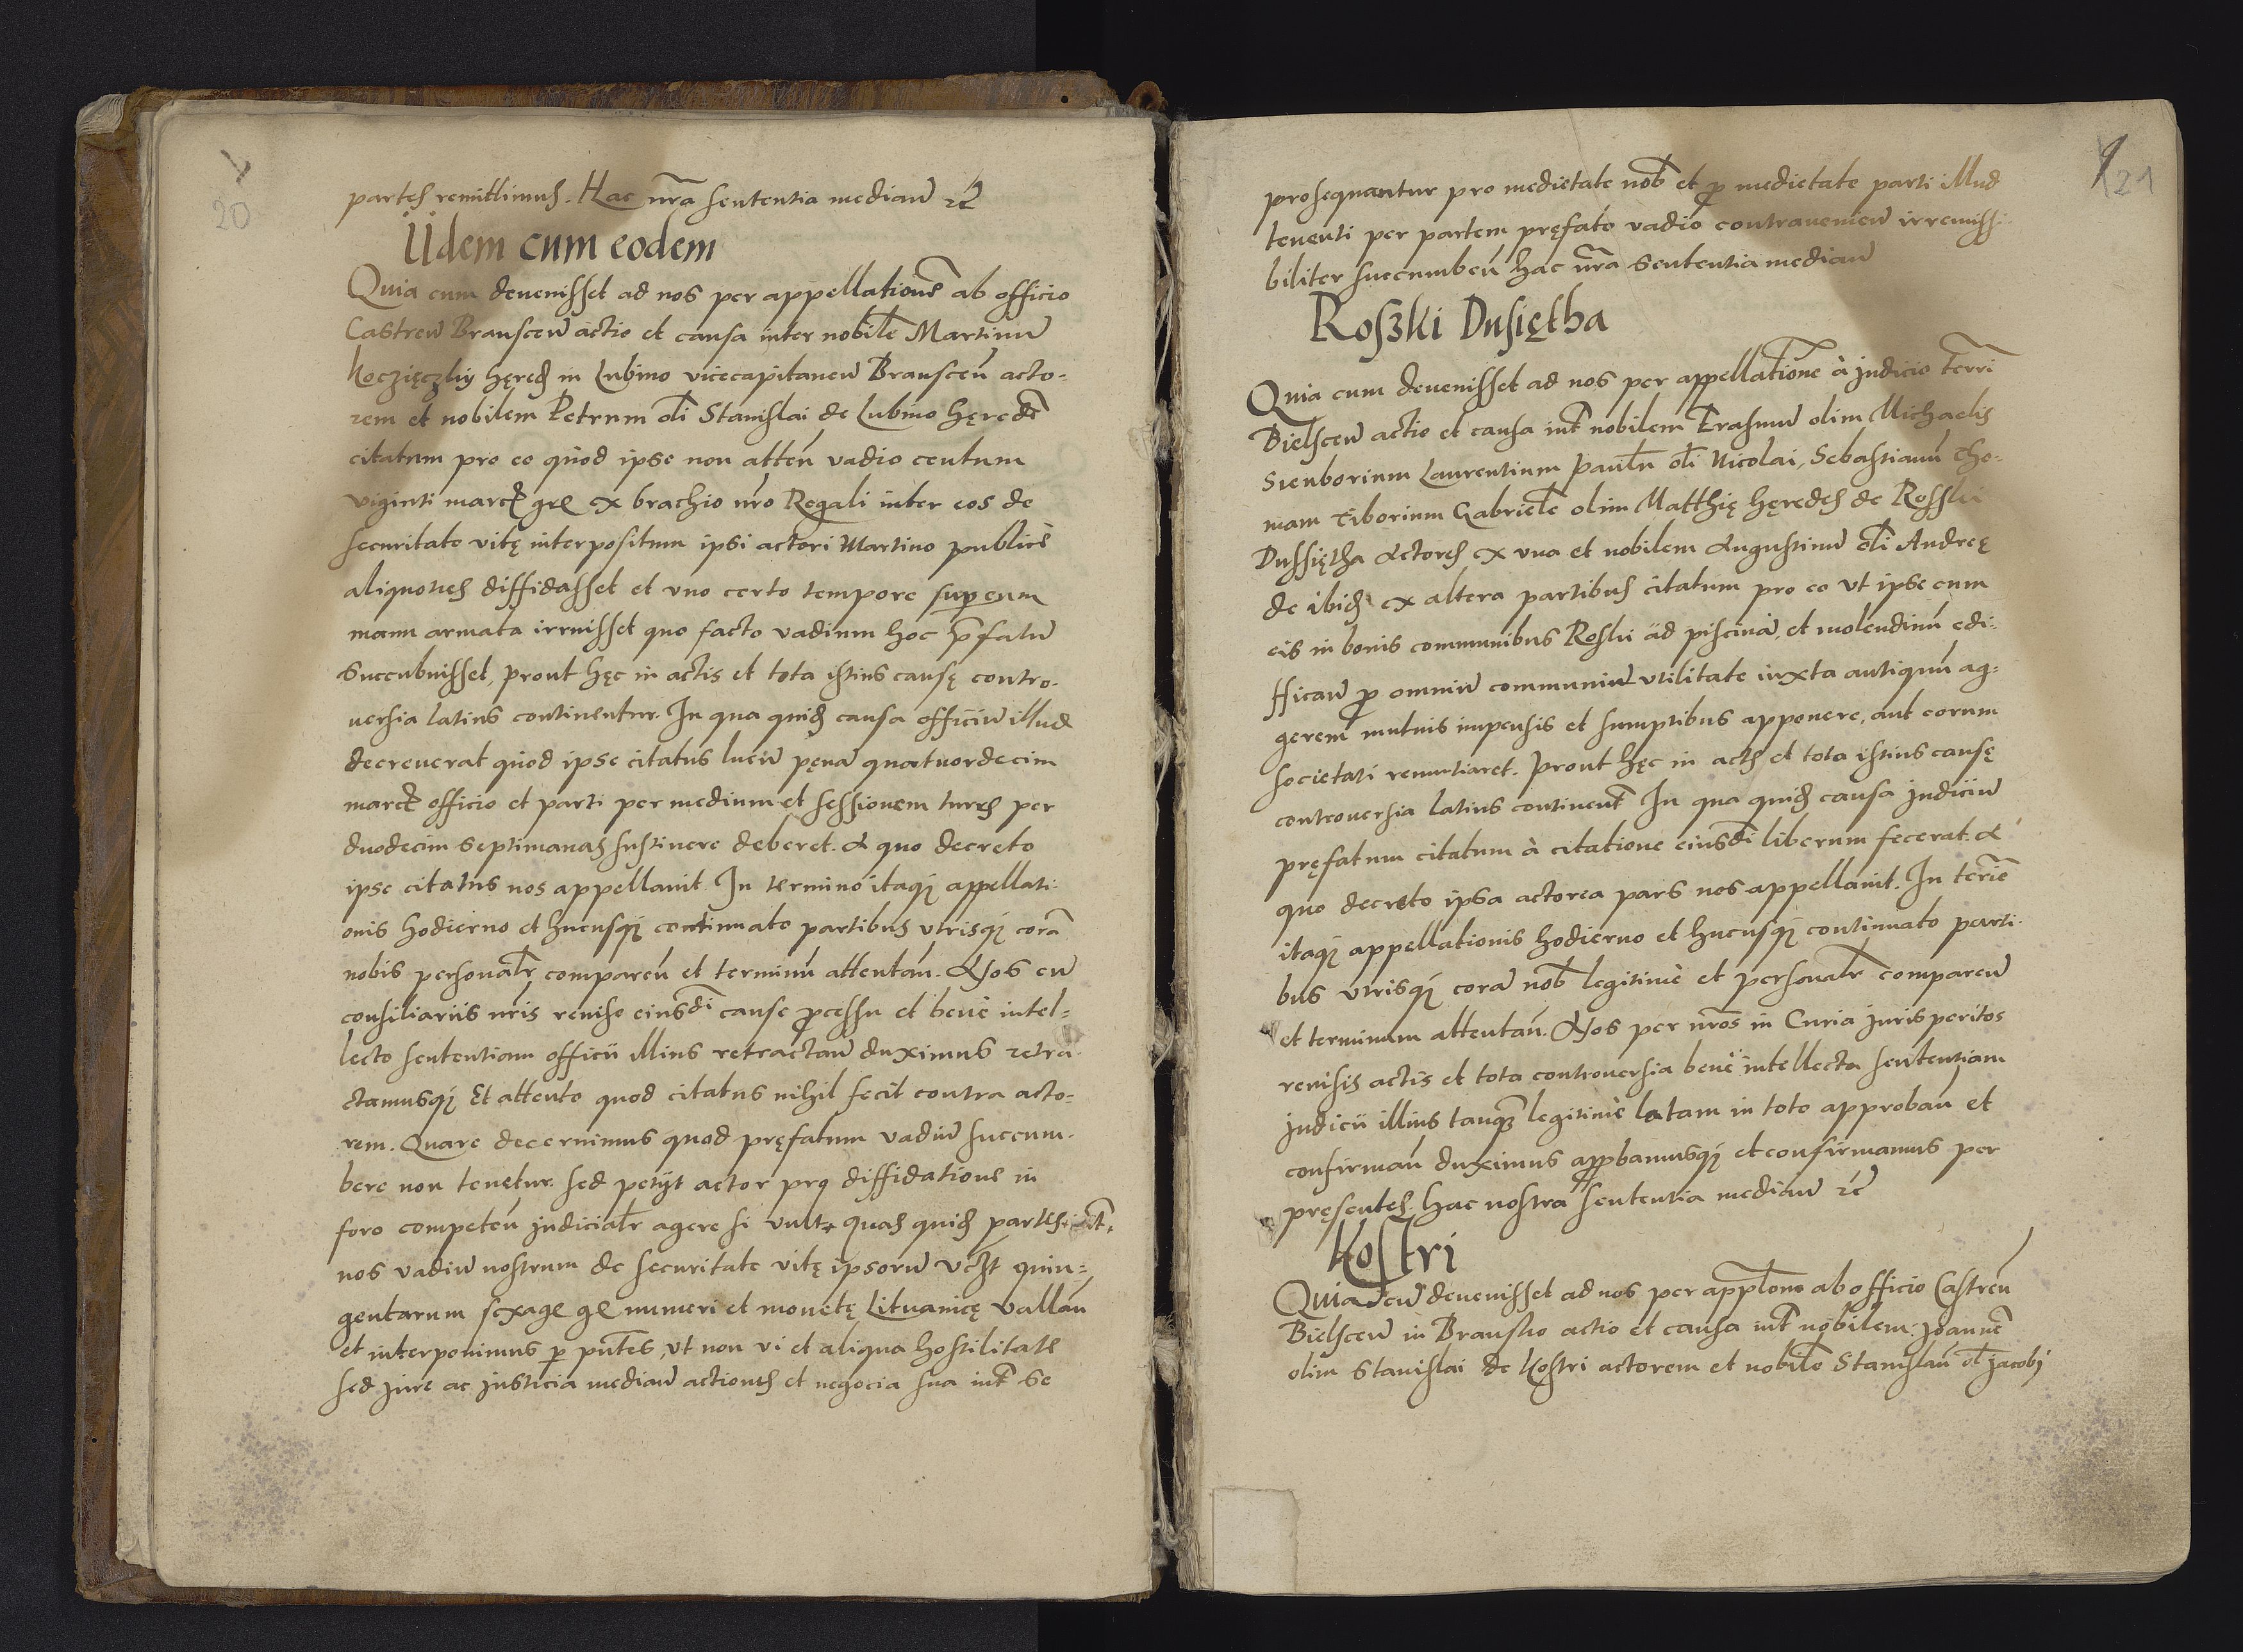 20
partes remittimus. Hac nr̃a sententia mediañ ꝛc̃
Iidem cum eodem
Quia cum devenisset ad nos per appellationẽ ab officio
Castreñ Bransceñ actio et causa inter nobilẽ Martinũ
Koczięczky hęred̃ in Lubino vicecapitaneũ Bransceñ acto=
rem et nobilem Petrum oli Stanislai de Lubino hęredẽ
citatum pro eo quod ipse non atteñ vadio centum
viginti marcꝭ ex brachio nr̃o Regali inter eos de
securitate vitę interpositum ipsi actori Martino publicè
aliquoties diffidasset et uno certo tempore super eum
manu armata irruisset quo facto vadium hoc p̃fatũ
succubuisset, prout hęc in actis et tota istius causę contro-
uersia latius continentur. In qua quid̃ causa officiũ illud
decreuerat quod ipse citatus lucrũ pęnã quatuordecim
marcꝭ officio et parti per medium et sessionem turris per
duodecim septimanas sustinere deberet. A quo decreto
ipse citatus nos appellauit. In termino itaqꝫ appellati-
onis hodierno et hucusqꝫ continuato partibus utrisqꝫ corã
nobis personalr̃ compareñ et terminũ attentañ. Nos cũ
consiliariis nr̃is reuiso eiusdi cause ꝓcessu et benè intel=
lecto sententiam officii illius retractañ duximus retra-
ctamusqꝫ Et attento quod citatus nihil fecit contra acto=
rem. Quare decernimus quod pręfatum vadiũ succum-
bere non tenetur. sed petijt actor pro diffidatione in
foro competeñ judicialr̃ agere si vult quas quid̃ partes int̃
nos vadiũ nostrum de securitate vitę ipsorũ vcꝫt quin=
gentarum sexage gr̃ numeri et monetę Lituanicę vallañ
et interponimus ꝑ pñtes, ut non vi et aliqua hostilitate
sed jure ac justicia mediañ actiones et negocia sua int̃ se
21
prosequantur pro medietate nob̃ et ꝓ medietate parti illud
tenenti per partem pręfato vadio contraueñieñ irremissi-
biliter succumbeñ hac nr̃a sententia mediañ
Roszki Dusiętha
Quia cum deuenisset ad nos per appellationẽ à judicio terri
Bielsceñ actio et causa int̃ nobilem Erasmũ olim Michaelis
Sieuborium Laurentium Paulũ oli Nicolai, Sebastianũ Tho-
mam Tiborium Gabrielẽ olim Matthię hęredes de Rosski
Dussiętha Actores ex una et nobilem Augustinũ oli Andreę
de ibid̃ ex altera partibus citatum pro eo ut ipse cum
eis in bonis communibus Roski ad piscinã, et molendinũ edi-
fficañ ꝓ omniũ communiũ utilitate iuxta antiquũ ag=
gerem mutuis impensis et sumptibus apponere, aut eorum
societati renuntiaret. Prout hęc in actis et tota istius causę
controuersia latius continent̃ In qua quid̃ causa judiciũ
pręfatum citatum à citatione eiusdi liberum fecerat. A
quo decreto ipsa actorea pars nos appellauit. In termie
itaqꝫ appellationis hodierno et hucusqꝫ continuato parti-
bus utrisqꝫ corã nob̃ legitimè et personalr̃ compareñ
et terminum attentañ. Nos per nr̃os in Curia jurisperitos
reuisis actis et tota controuersia benè intellecta sententiam
judicii illius tanqꝫ legitimè latam in toto approbañ et
confirmañ duximus approbamusqꝫ et confirmamus per
pręsentes. hac nostra sententia mediañ ꝛc̃
Kostri
Quia cũ deuenisset ad nos per applonẽ ab officio Castreñ
Bielsceñ in Bransko actio et causa int̃ nobilem Joannẽ
olim Stanislai de Kostri actorem et nobilẽ Stanislaũ ol̃ Jacobj